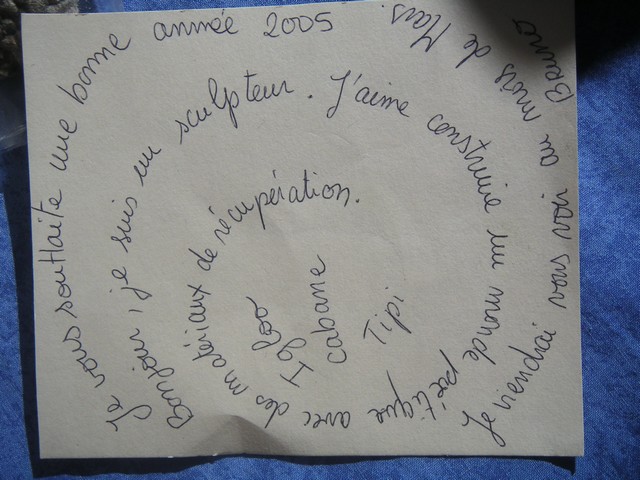 Bonjour, je suis un sculpteur. J'aime construire un monde poétique avec des matériaux de récupération.
Igloo
cabane
Tipi
Je vous souhaite une bonne année 2005
Je viendrai vous voir au mois de Mars.
Bruno